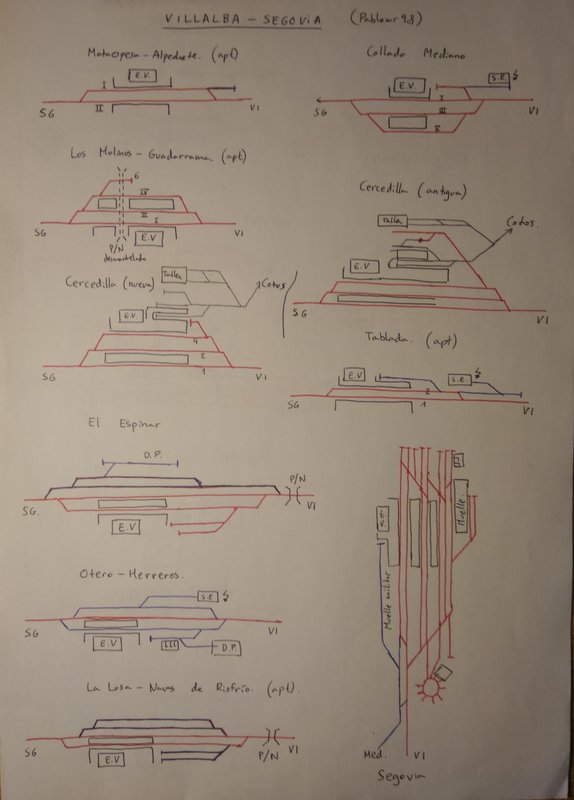 VILLALBA - SEGOVIA (Pablomr98)
Mataespesa - Alpedrete. (apt)
E.V.
I
II
SG
VI
Collado Mediano
E.V.
S.E.
I
III
V
SG
VI
Los Molinos - Guadarrama. (apt)
6
IV
II
I
SG
E.V
VI
P/N
desmantelado
Cercedilla (antigua)
Taller
Cotos.
E.V
SG
VI
Cercedilla (nueva)
Taller
Cotos
E.V.
4
2
1
SG
VI
Tablada. (apt)
E.V
S.E.
2
1
SG
VI
El Espinar
D.P.
P/N
SG.
E.V
VI
Otero - Herreros.
S.E
SG
VI
E.V
D.P.
La Losa - Navas de Riofrío. (apt).
SG
E.V
P/N
VI
E.V.
Muelle
Muelle militar
Med.
VI
Segovia